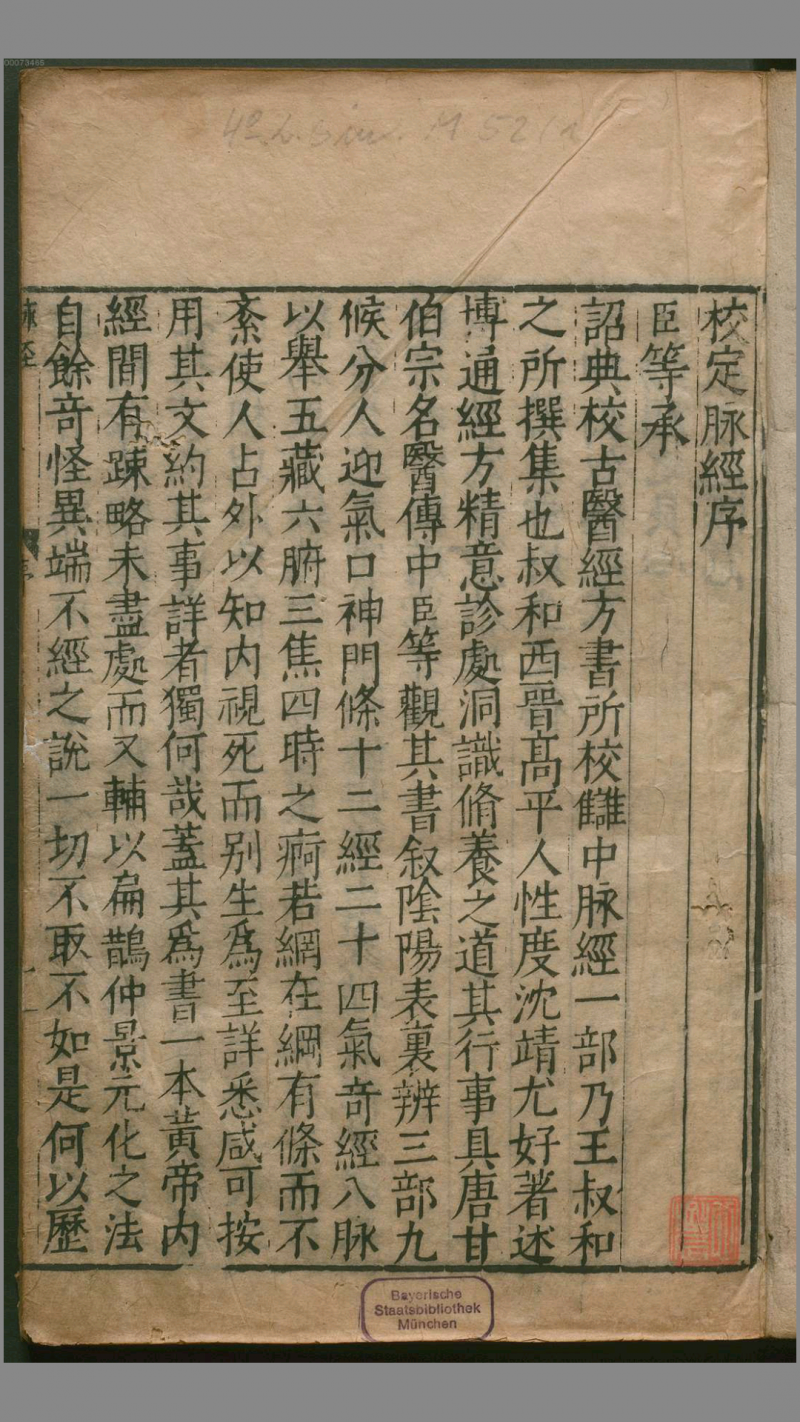 00073465
4° L. sin. M 52/1
校定脉經序
臣等承
詔典校古醫經方書所校讎中脉經一部乃王叔和
之所撰集也叔和西晉髙平人性度沈靖尤好著述
博通經方精意診處洞識脩養之道其行事具唐甘
伯宗名醫傳中臣等觀其書叙陰陽表裏辨三部九
候分人迎氣口神門條十二經二十四氣奇經八脉
以舉五藏六腑三焦四時之痾若網在綱有條而不
紊使人占外以知内視死而别生爲至詳悉咸可按
用其文約其事詳者獨何哉蓋其爲書一本黃帝内
經間有踈略未盡處而又輔以扁鵲仲景元化之法
自餘奇怪異端不經之説一切不取不如是何以歷
脉經
序
Bayerische
Staatsbibliothek
München